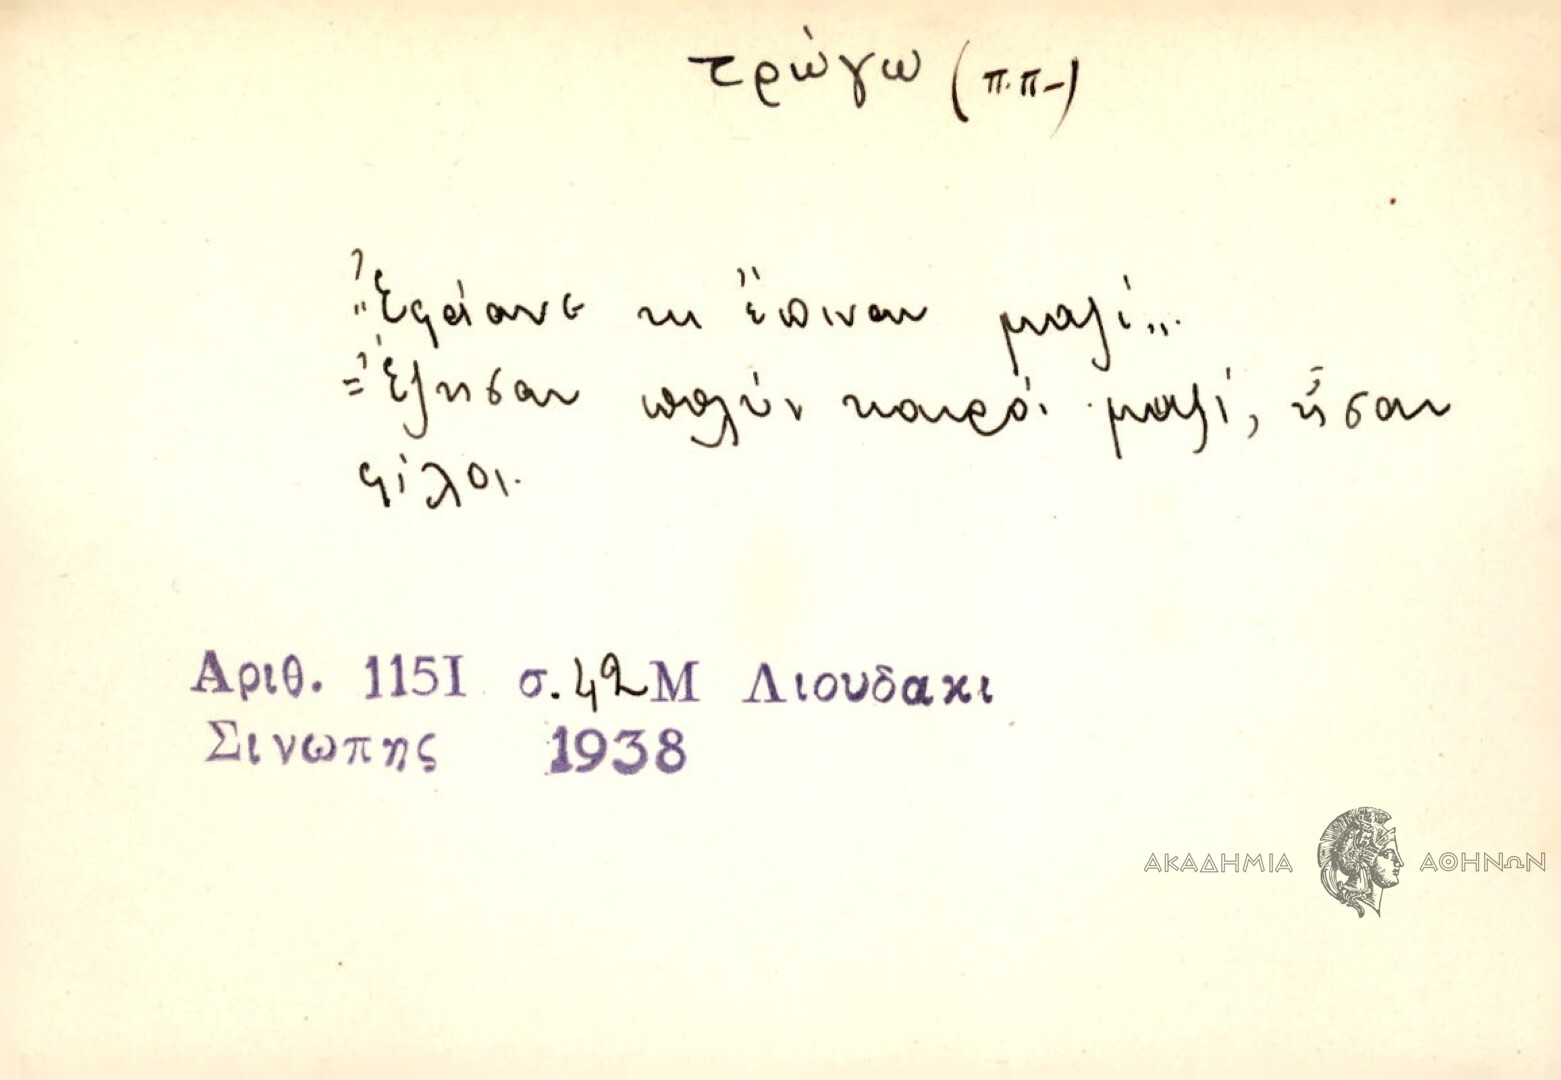 τρώγω (π.π-)
"Ἐφάανε κι ἔπιναν μαζί".
= Ἔζησαν πολύν καιρό μαζί, ἦσαν
φίλοι.
Αριθ. 115Ι σ. 42 Μ Λιουδακι
Σινωπης 1938
ΑΚΑΔΗΜΙΑ ΑΘΗΝΩΝ